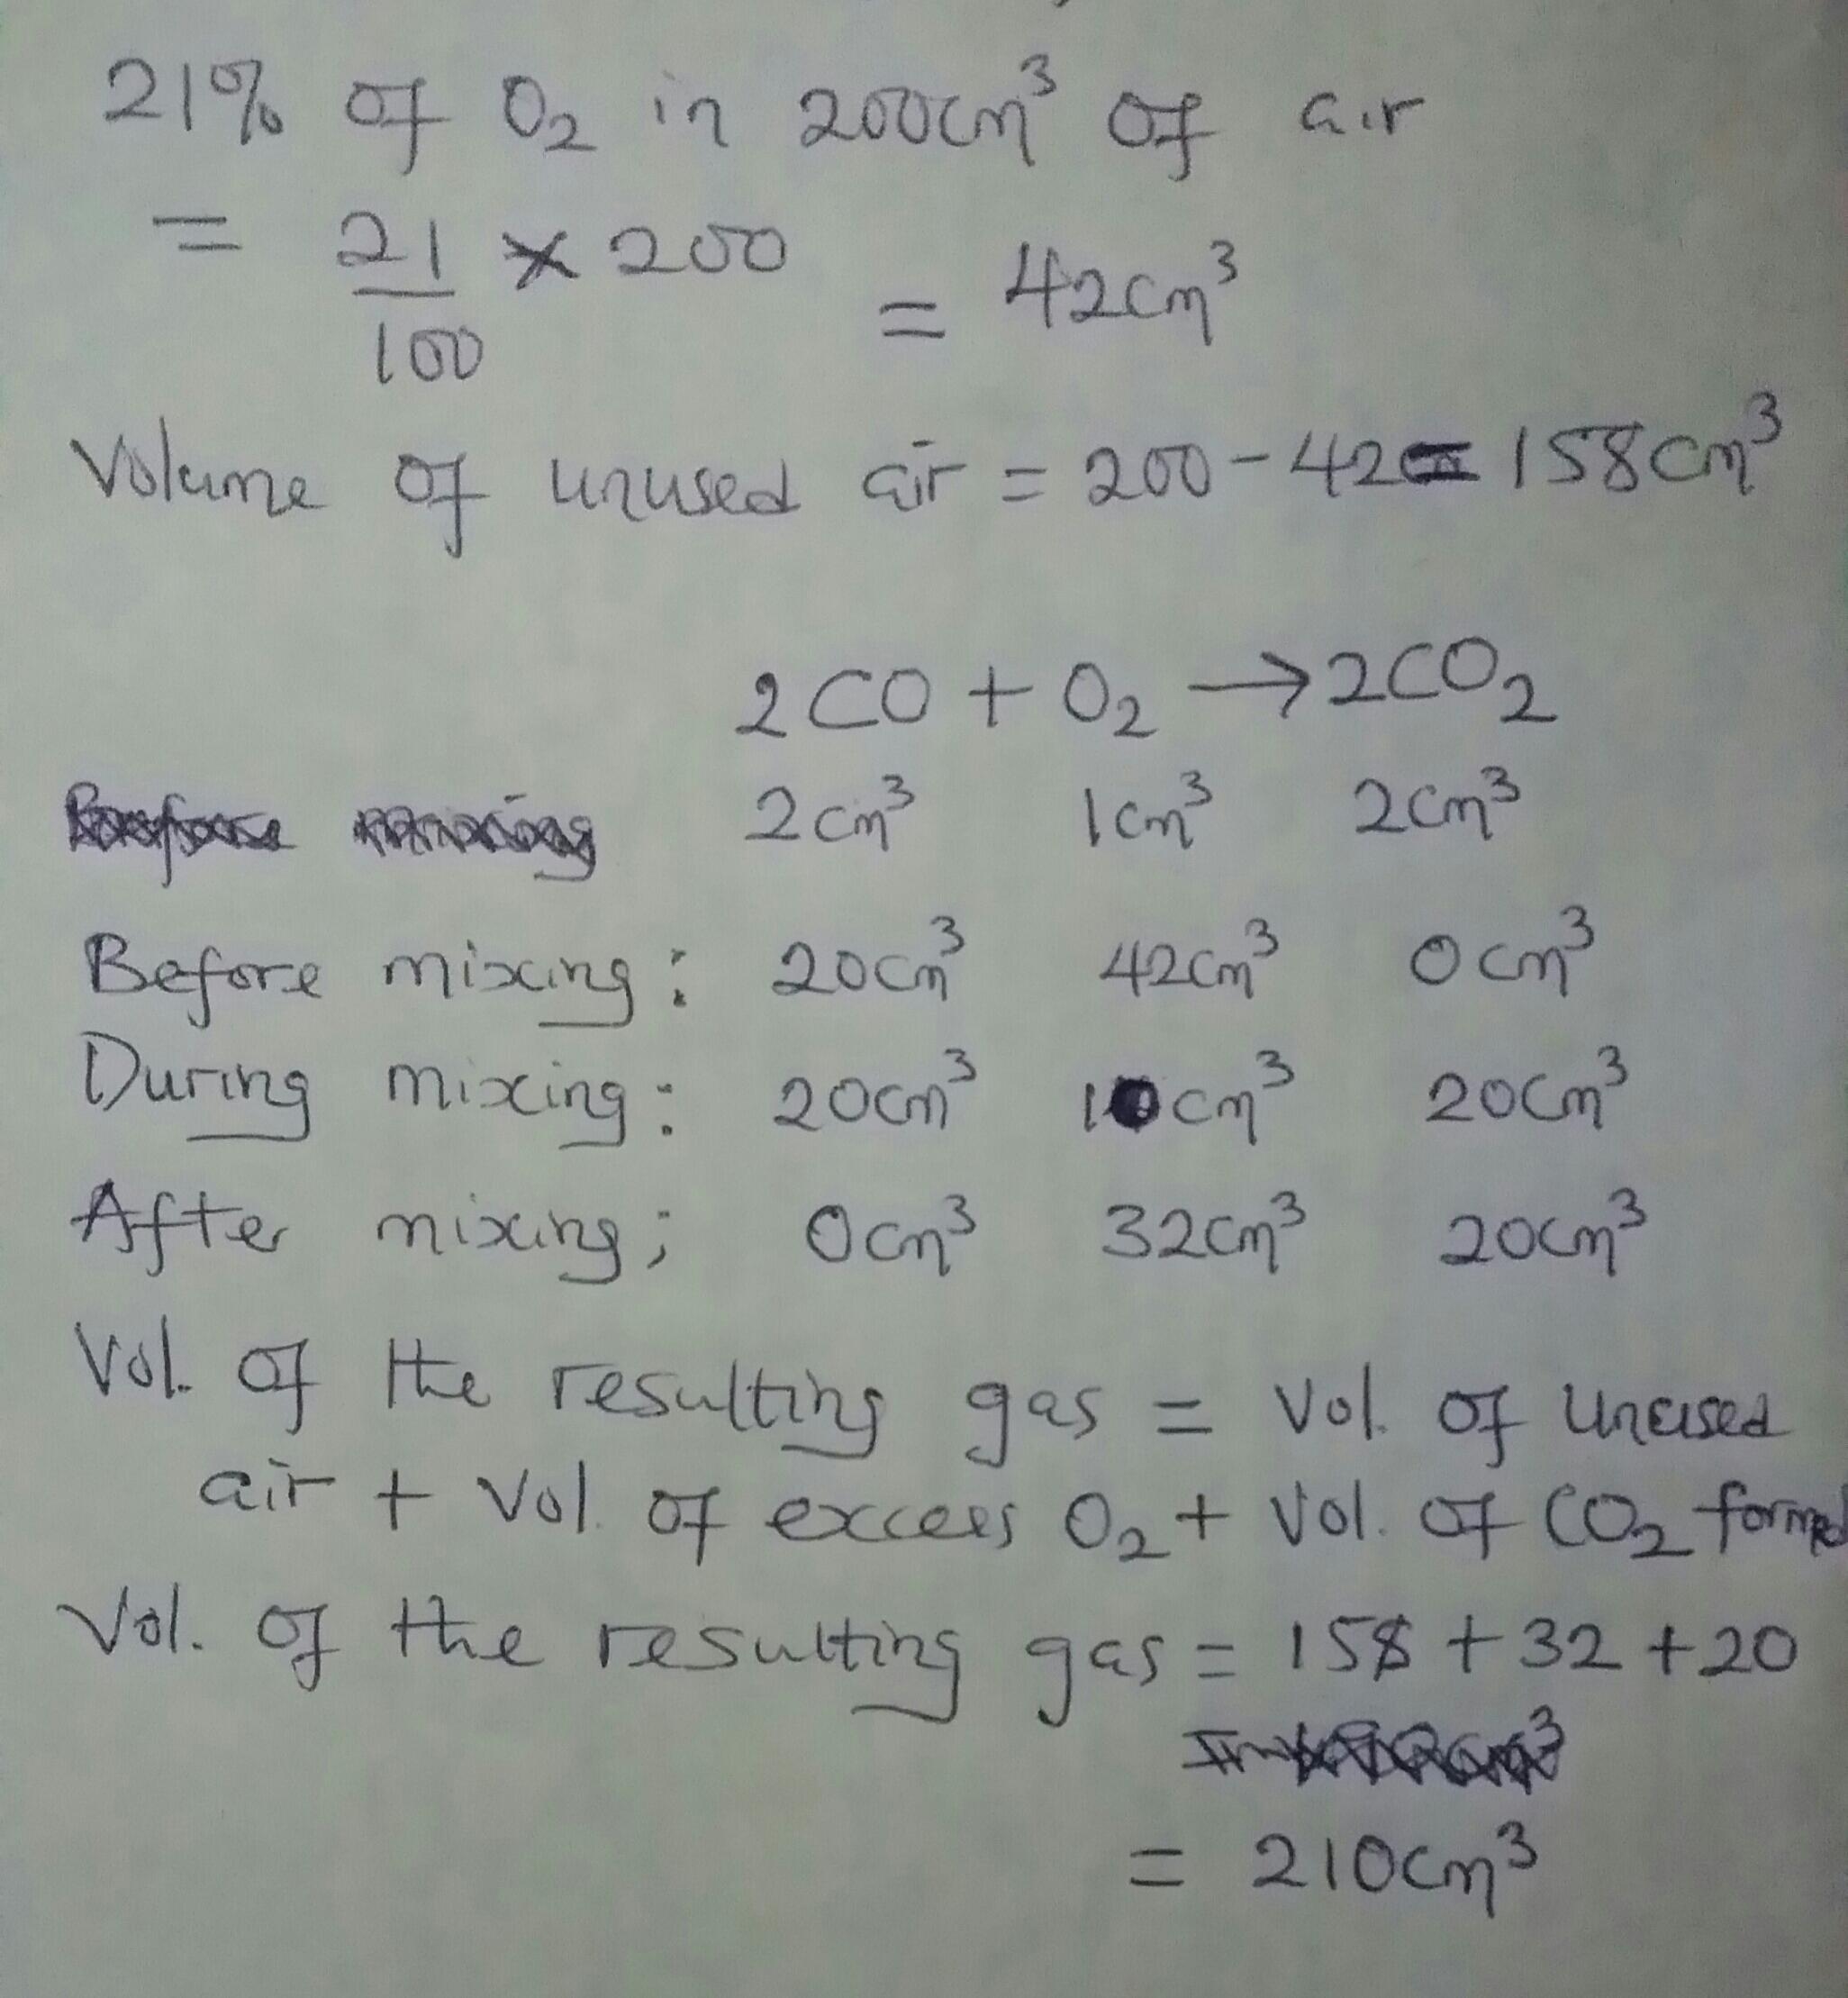 21% of O₂ in 200cm³ of air
= 21/100 × 200 = 42cm³
Volume of unused air = 200 - 42 = 158cm³
2CO + O₂ → 2CO₂
2cm³ 1cm³ 2cm³
Before mixing: 20cm³ 42cm³ 0cm³
During mixing: 20cm³ 10cm³ 20cm³
After mixing; 0cm³ 32cm³ 20cm³
Vol. of the resulting gas = Vol. of unused
air + Vol. of excess O₂ + Vol. of CO₂ formed
Vol. of the resulting gas = 158 + 32 + 20
= 210cm³